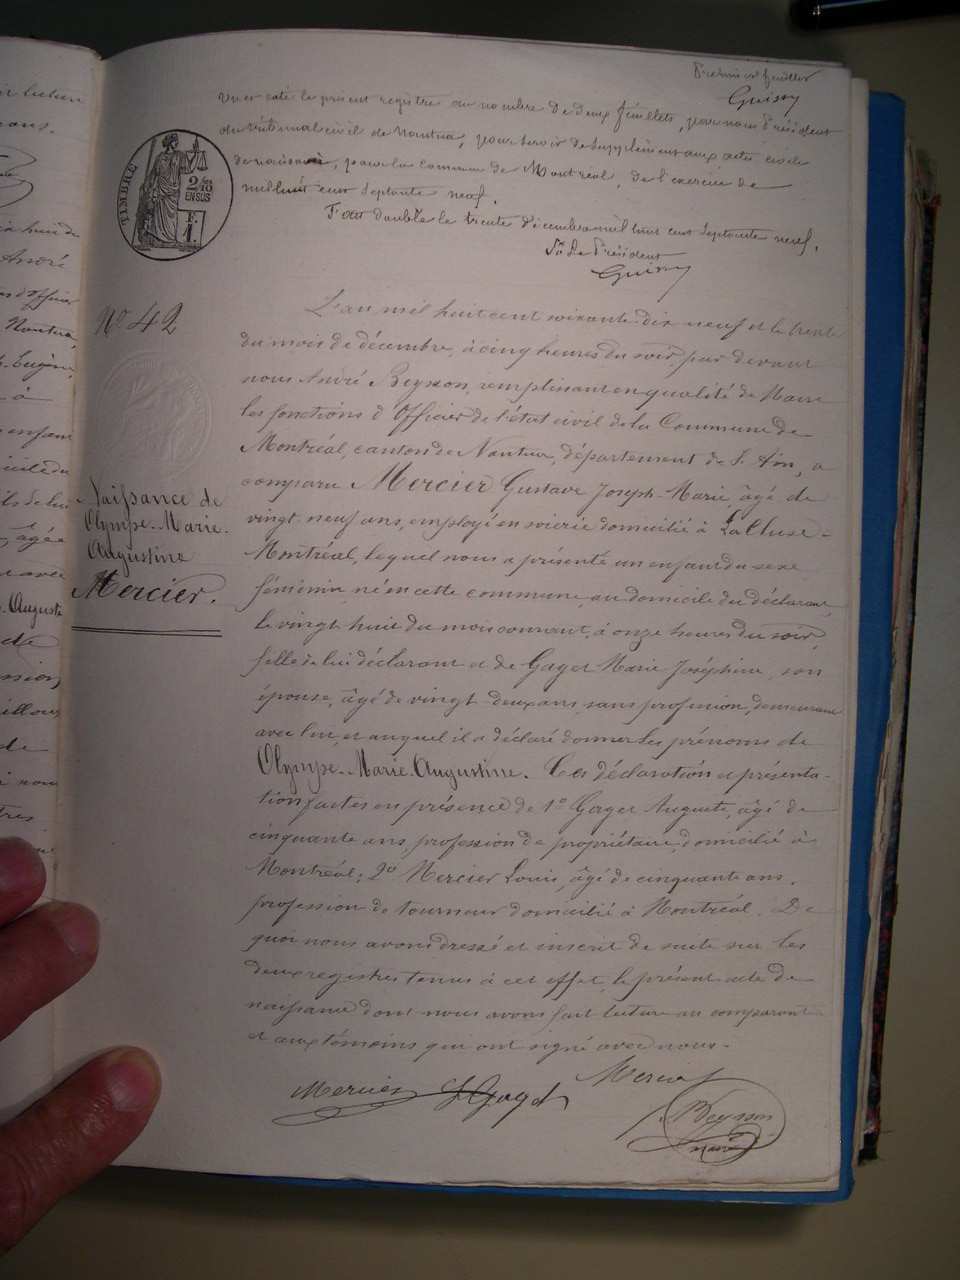 Premier feuillet
Guissy
Vu et coté le présent registre au nombre de deux feuillets, par nous Président
du tribunal civil de Nantua, pour servir de supplément aux actes civils
de naissance, pour la commune de Montréal, de l'exercice de
mil huit cent septante neuf.
Fait double le trente Décembre mil huit cent septante neuf.
Le Président
Guissy
TIMBRE
2/10
EN SUS
N° 42
Naissance de
Olympe-Marie-
Augustine
Mercier.
L'an mil huit cent soixante dix neuf et le trente
du mois de décembre, à cinq heures du soir, par devant
nous André Beysson, remplissant en qualité de Maire
les fonctions d'Officier de l'état civil de la Commune de
Montréal, canton de Nantua, département de l'Ain, a
comparu Mercier Gustave Joseph-Marie, âgé de
vingt-neuf ans, employé en soierie domicilié à LaCluse-
Montréal, lequel nous a présenté un enfant du sexe
féminin, né en cette commune, au domicile du déclarant
le vingt huit du mois courant, à onze heures du soir,
fille de lui déclarant et de Gaget Marie Joséphine, son
épouse, âgé de vingt-deux ans, sans profession, demeurant
avec lui, et auquel il a déclaré donner les prénoms de
Olympe-Marie-Augustine. Ces déclaration et présenta-
tion faites en présence de 1° Gaget Auguste, âgé de
cinquante ans, profession de propriétaire, domicilié à
Montréal; 2° Mercier Louis, âgé de cinquante ans,
profession de tourneur domicilié à Montréal. De
quoi nous avons dressé et inscrit de suite sur les
deux registres tenus à cet effet, le présent acte de
naissance dont nous avons fait lecture au comparant
et aux témoins qui ont signé avec nous.
Mercier Gaget Mercier
Beysson
maire